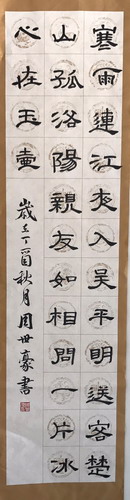 寒雨連江夜入吴平明送客楚
山孤洛陽親友如相問一片冰
心在玉壺
歲在丁酉秋月周世豪書